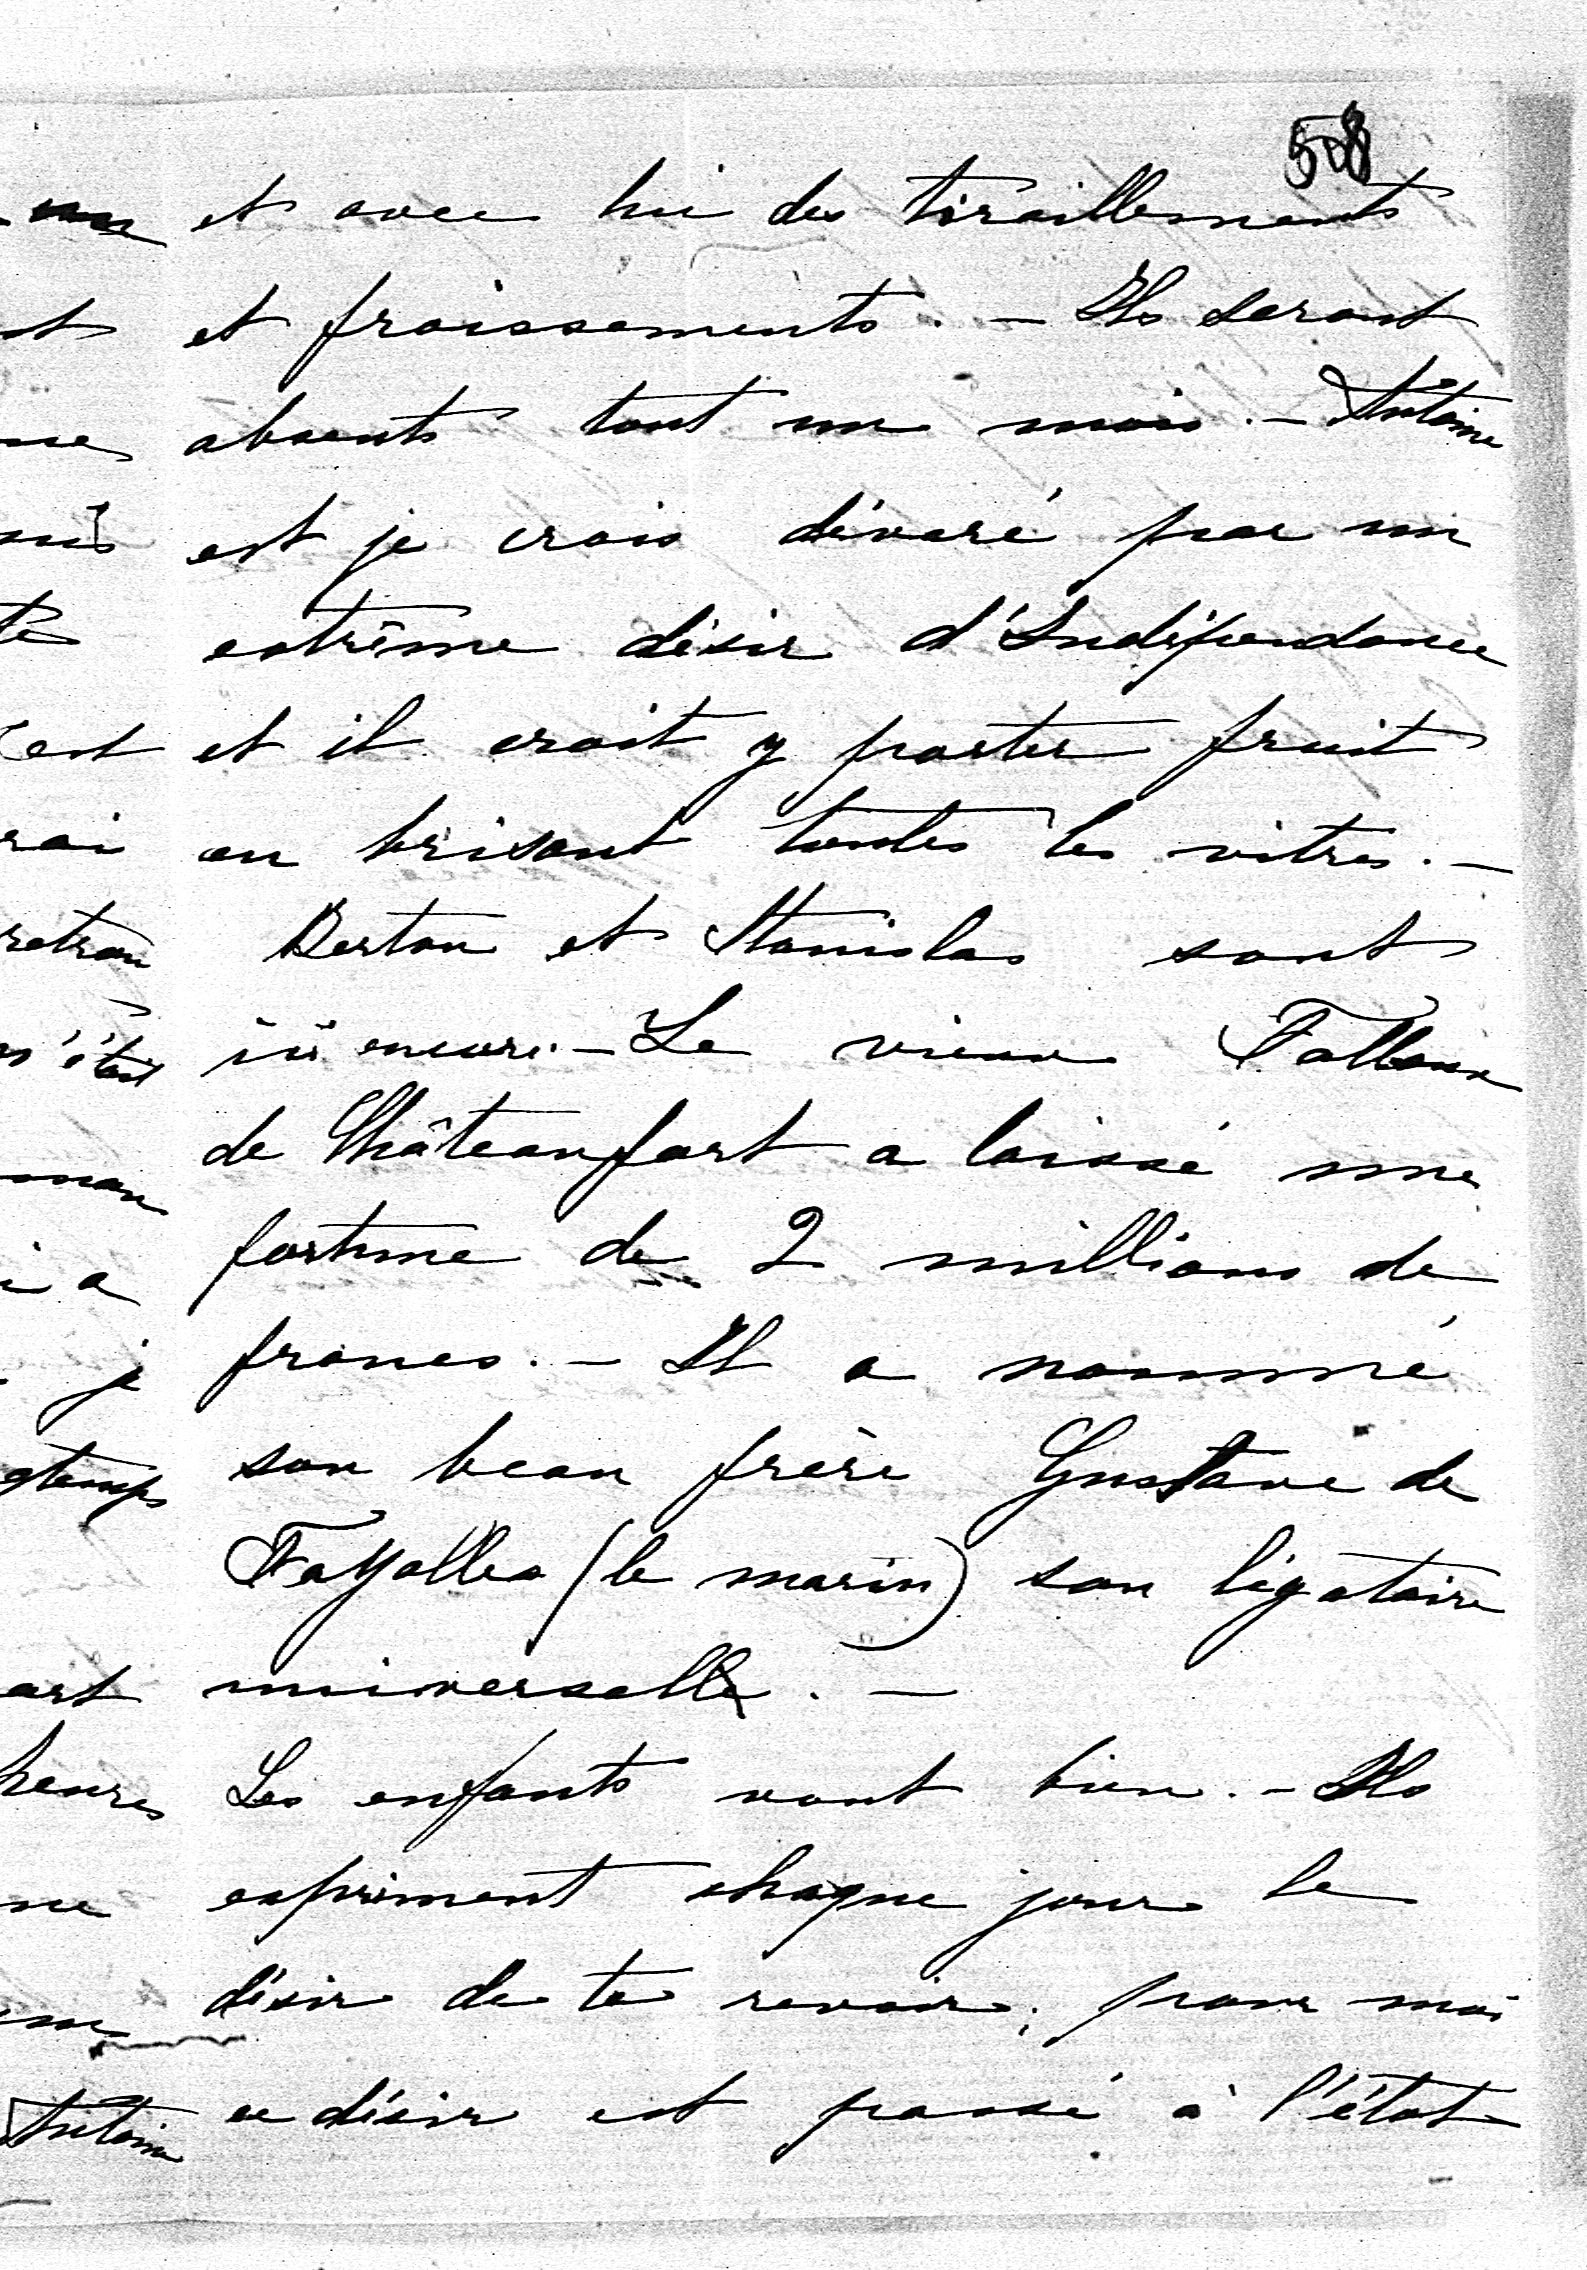 508
et avec lui des tiraillements
et froissements. – Ils seront
absents tout un mois. – Antoine
est je crois dévoré par un
extrême désir d'Indépendance
et il croit y porter fruit
en brisant toutes les vitres. –
Berton et Stanislas sont
ici encore. – Le vieux Falloux
de Châteaufort a laissé une
fortune de 2 millions de
francs. – Il a nommé
son beau frère Gustave de
Fayolles (le marin) son légataire
universelle. –
Les enfants vont bien. – Ils
expriment chaque jour le
désir de te revoir; pour moi
ce désir est passé à l'état